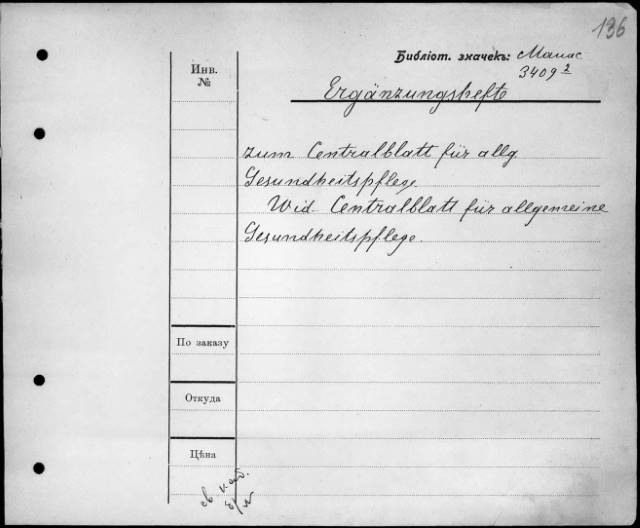 136
Библіот. значекъ: Манас
3409²
Инв.
№
Ergänzungshefte
zum Centralblatt für allg.
Gesundheitspflege.
Wid. Centralblatt für allgemeine
Gesundheitspflege.
По заказу
Откуда
Цѣна